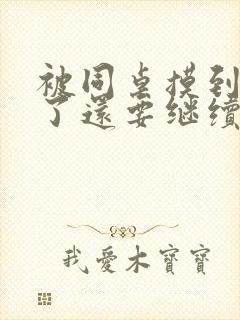 被同桌摸到
了還要继續
我愛木寶寶